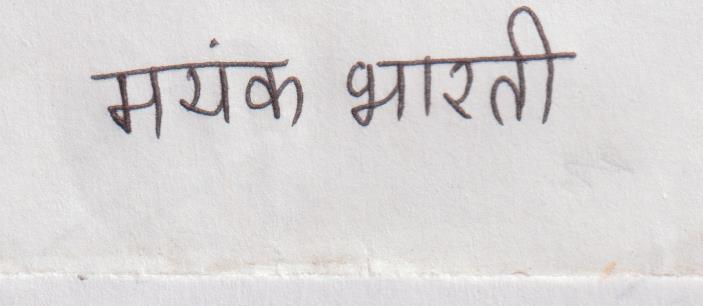 मयंक भारती